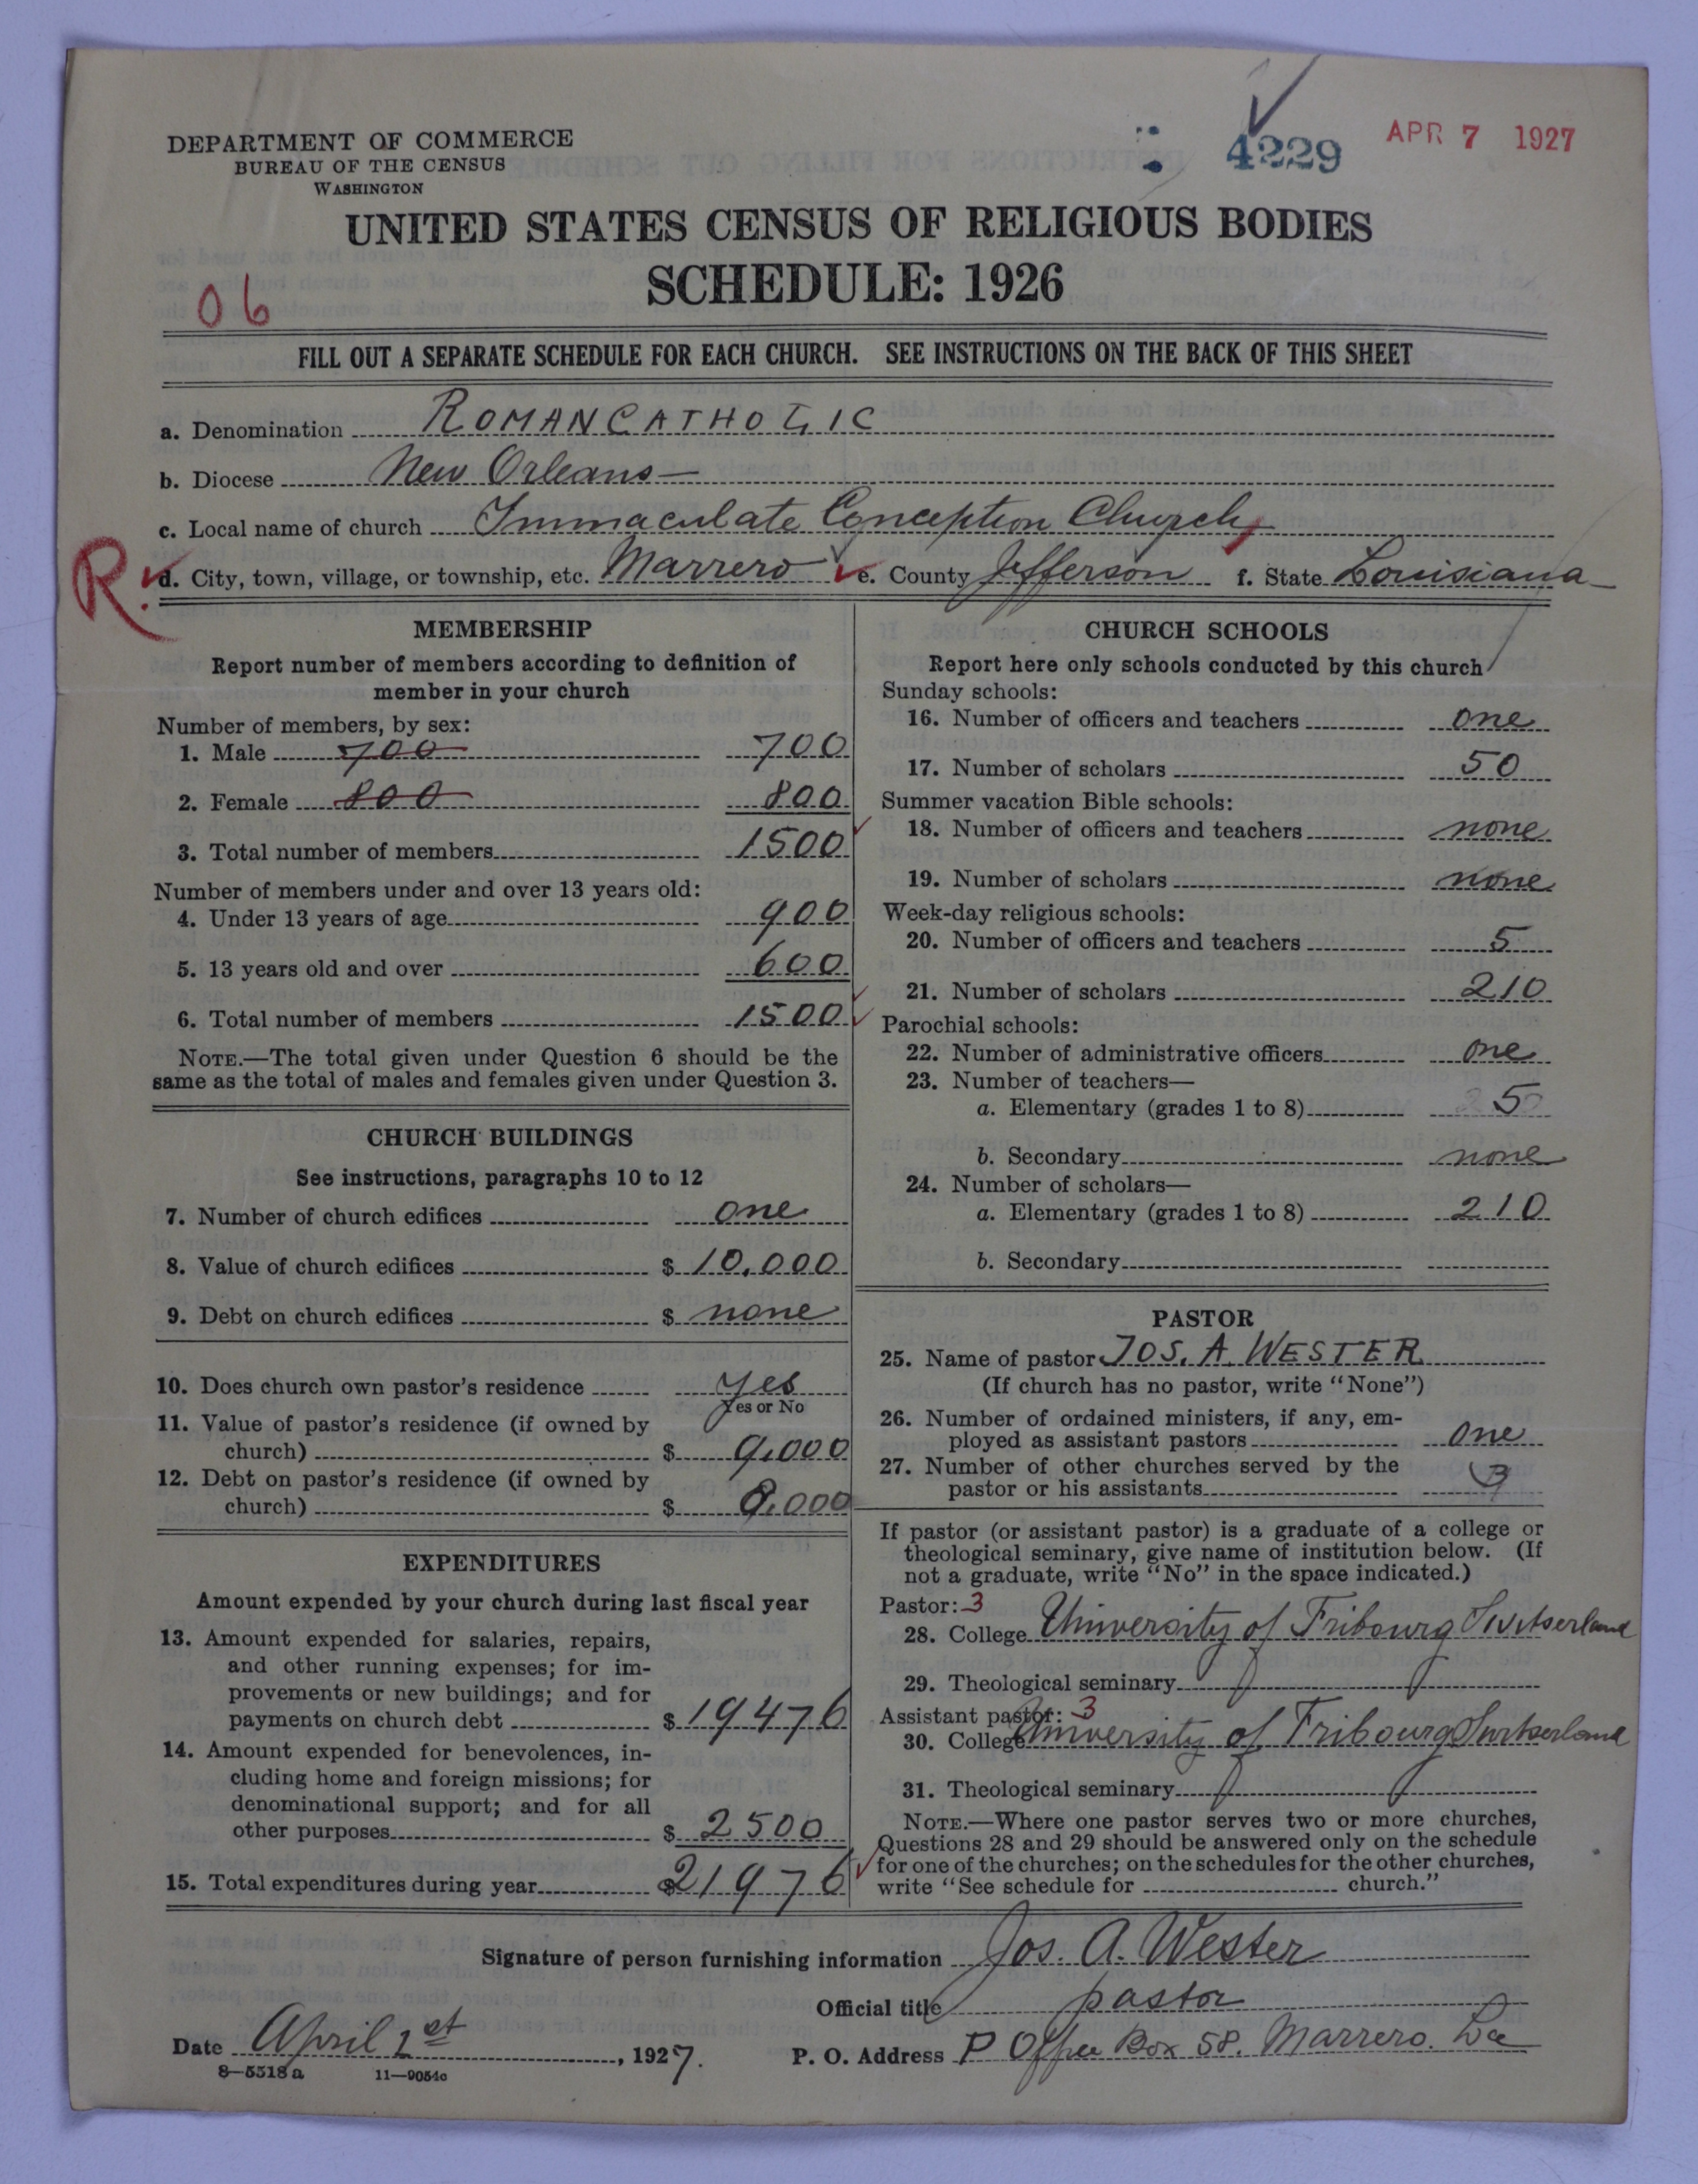 DEPARTMENT OF COMMERCE
BUREAU OF THE CENSUS
WASHINGTON
4229
APR 7 1927
UNITED STATES CENSUS OF RELIGIOUS BODIES
SCHEDULE: 1926
06
FILL OUT A SEPARATE SCHEDULE FOR EACH CHURCH. SEE INSTRUCTIONS ON THE BACK OF THIS SHEET
a. Denomination ROMAN CATHOLIC
b. Diocese New Orleans—
c. Local name of church Immaculate Conception Church
R. d. City, town, village, or township, etc. Marrero e. County Jefferson f. State Louisiana
MEMBERSHIP
Report number of members according to definition of
member in your church
Number of members, by sex:
1. Male 700 700
2. Female 800 800
3. Total number of members 1500
Number of members under and over 13 years old:
4. Under 13 years of age 900
5. 13 years old and over 600
6. Total number of members 1500
NOTE.—The total given under Question 6 should be the
same as the total of males and females given under Question 3.
CHURCH BUILDINGS
See instructions, paragraphs 10 to 12
7. Number of church edifices one
8. Value of church edifices $ 10,000
9. Debt on church edifices $ none
10. Does church own pastor's residence yes
Yes or No
11. Value of pastor's residence (if owned by
church) $ 9,000
12. Debt on pastor's residence (if owned by
church) $ 8,000
EXPENDITURES
Amount expended by your church during last fiscal year
13. Amount expended for salaries, repairs,
and other running expenses; for im-
provements or new buildings; and for
payments on church debt $ 19476
14. Amount expended for benevolences, in-
cluding home and foreign missions; for
denominational support; and for all
other purposes $ 2500
15. Total expenditures during year $21976
CHURCH SCHOOLS
Report here only schools conducted by this church
Sunday schools:
16. Number of officers and teachers one
17. Number of scholars 50
Summer vacation Bible schools:
18. Number of officers and teachers none
19. Number of scholars none
Week-day religious schools:
20. Number of officers and teachers 5
21. Number of scholars 210
Parochial schools:
22. Number of administrative officers one
23. Number of teachers—
a. Elementary (grades 1 to 8) 5
b. Secondary none
24. Number of scholars—
a. Elementary (grades 1 to 8) 210
b. Secondary
PASTOR
25. Name of pastor JOS. A. WESTER
(If church has no pastor, write "None")
26. Number of ordained ministers, if any, em-
ployed as assistant pastors one
27. Number of other churches served by the
pastor or his assistants 3
If pastor (or assistant pastor) is a graduate of a college or
theological seminary, give name of institution below. (If
not a graduate, write "No" in the space indicated.)
Pastor: 3
28. College University of Fribourg Switserland
29. Theological seminary
Assistant pastor: 3
30. College University of Fribourg Switserland
31. Theological seminary
NOTE.—Where one pastor serves two or more churches,
Questions 28 and 29 should be answered only on the schedule
for one of the churches; on the schedules for the other churches,
write "See schedule for church."
Signature of person furnishing information Jos. A. Wester
Official title pastor
Date April 1st, 1927.
P. O. Address P Office Box 58. Marrero. La
8—5518 a 11—9054c